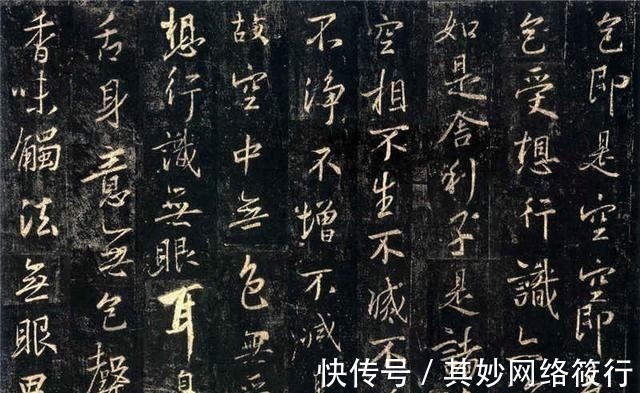 色即是空空即
色受想行識
如是舍利子是諸
空相不生不滅不
不淨不增不減
故空中無色無
想行識無眼耳鼻
舌身意無色聲
香味觸法無眼界
快传号 / 其妙网络筱行